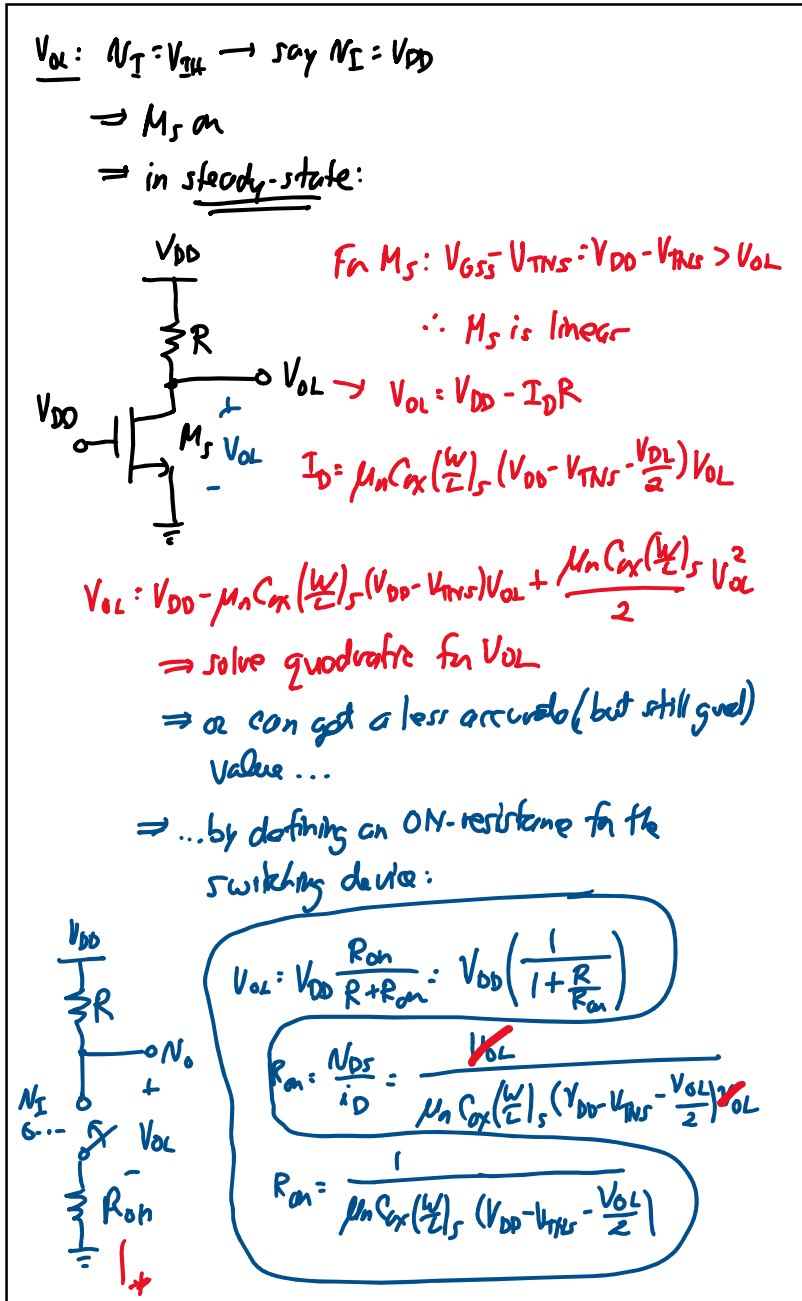 V_OL: v_I = V_IH → say v_I = V_DD
⇒ M_S on
⇒ in steady-state:
V_DD
R
V_DD
M_S
V_OL
+
V_OL
-
For M_S: V_GSS - V_TNS = V_DD - V_TNS > V_OL
∴ M_S is linear
→ V_OL = V_DD - I_D R
I_D = μ_n C_ox (W/L)_S (V_DD - V_TNS - V_OL/2) V_OL
V_OL = V_DD - μ_n C_ox (W/L)_S (V_DD - V_TNS) V_OL + μ_n C_ox (W/L)_S / 2 V_OL^2
⇒ solve quadratic for V_OL
⇒ or can get a less accurate (but still good)
value ...
⇒ ...by defining an ON-resistance for the
switching device:
V_DD
R
v_o
v_I
+
V_OL
-
R_on
*
V_OL = V_DD R_on / (R + R_on) = V_DD (1 / (1 + R/R_on))
R_on = v_DS / i_D = V_OL / (μ_n C_ox (W/L)_S (V_DD - V_TNS - V_OL/2) V_OL)
R_on = 1 / (μ_n C_ox (W/L)_S (V_DD - V_TNS - V_OL/2))